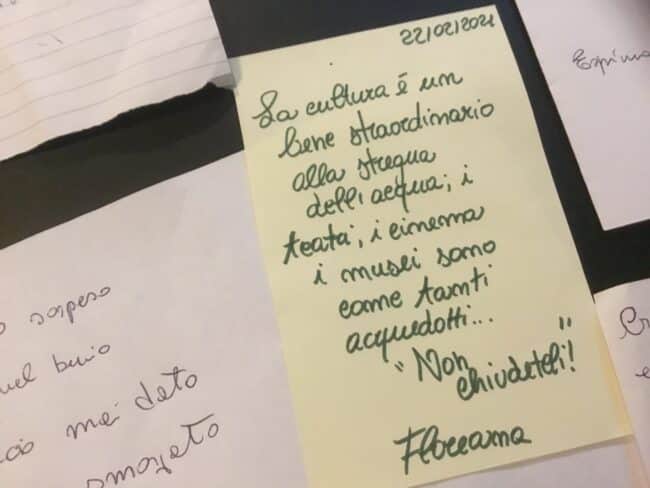 22/02/2021
La cultura è un
bene straordinario
alla stregua
dell'acqua; i
teatri, i cinema
i musei sono
come tanti
acquedotti...
"Non
chiudeteli!"
Floreana
o sospeso
uel buio
mai dato
smorzato
Esprim